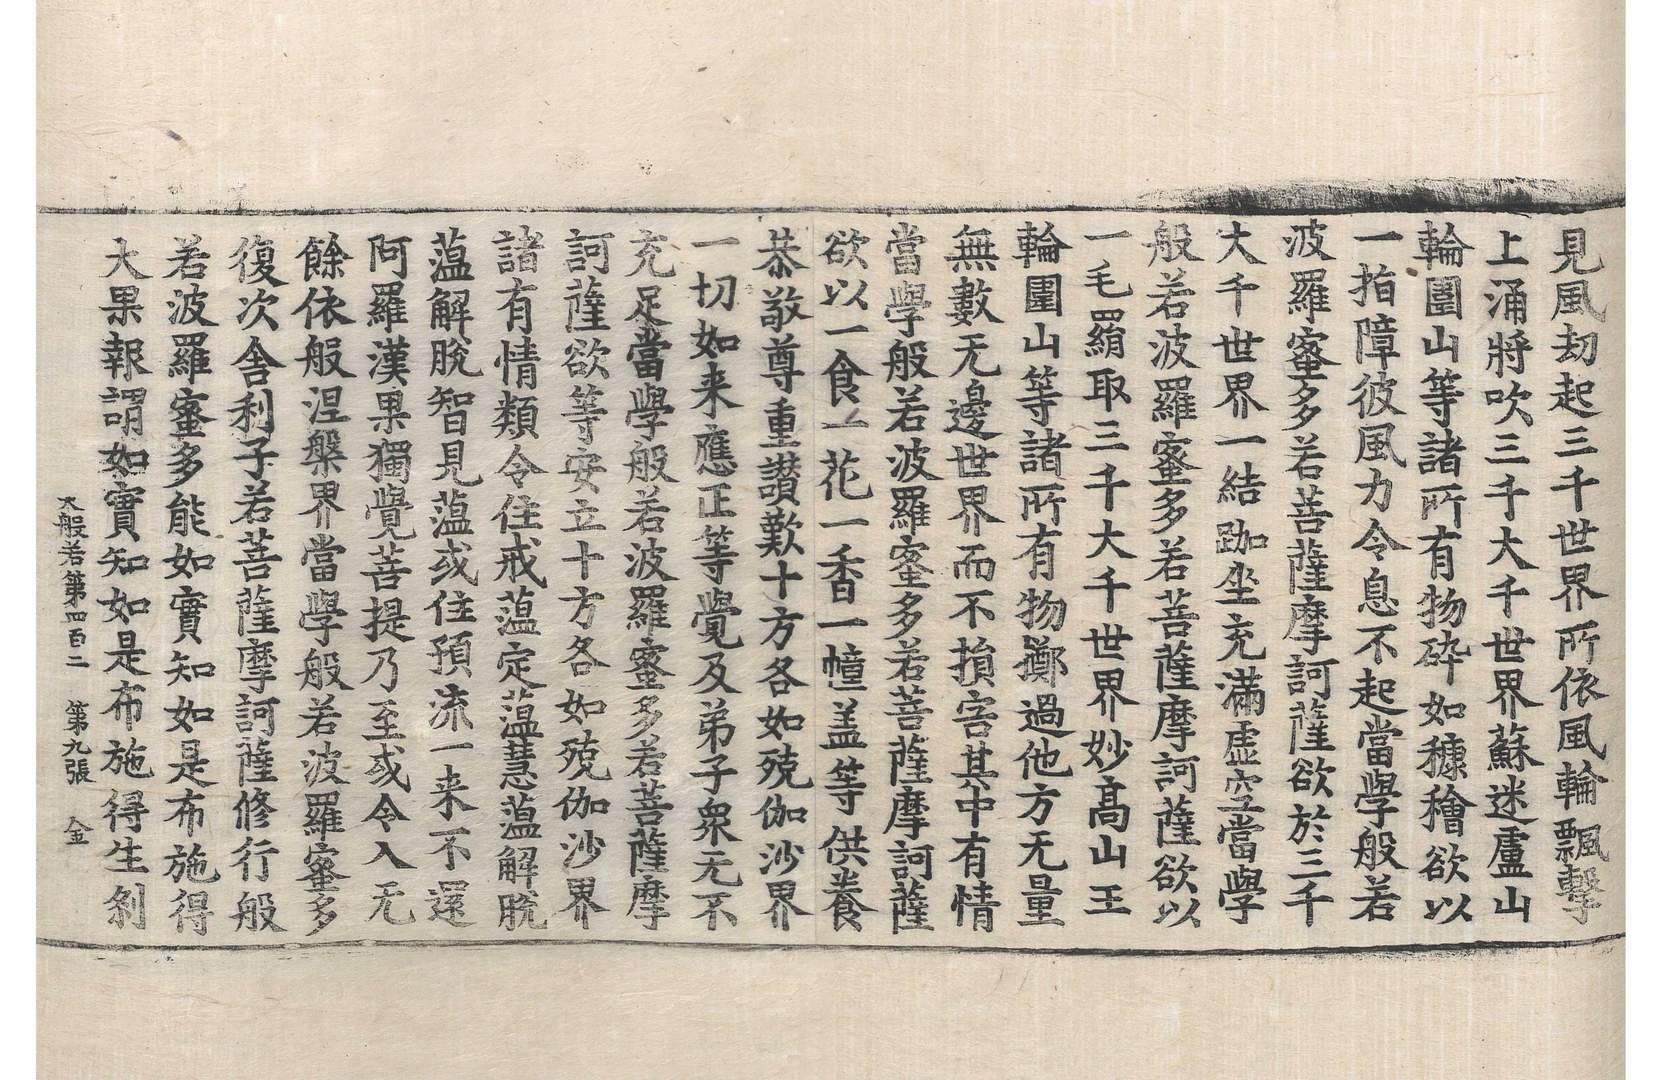 見風劫起三千世界所依風輪飄擊
上涌將吹三千大千世界蘇迷盧山
輪圍山等諸所有物碎如糠穭欲以
一指障彼風力令息不起當學般若
波羅蜜多若菩薩摩訶薩欲於三千
大千世界一結跏坐充滿虛空當學
般若波羅蜜多若菩薩摩訶薩欲以
一毛羂取三千大千世界妙高山王
輪圍山等諸所有物擲過他方无量
無數无邊世界而不損害其中有情
當學般若波羅蜜多若菩薩摩訶薩
欲以一食一花一香一幢盖等供養
恭敬尊重讃歎十方各如殑伽沙界
一切如来應正等覺及弟子衆无不
充足當學般若波羅蜜多若菩薩摩
訶薩欲等安立十方各如殑伽沙界
諸有情類令住戒蕰定蕰慧蕰解脫
蕰解脫智見蕰或住預流一来不還
阿羅漢果獨覺菩提乃至或令入无
餘依般涅槃界當學般若波羅蜜多
復次舍利子若菩薩摩訶薩修行般
若波羅蜜多能如實知如是布施得
大果報謂如實知如是布施得生剎
大般若第四百二　第九張　金